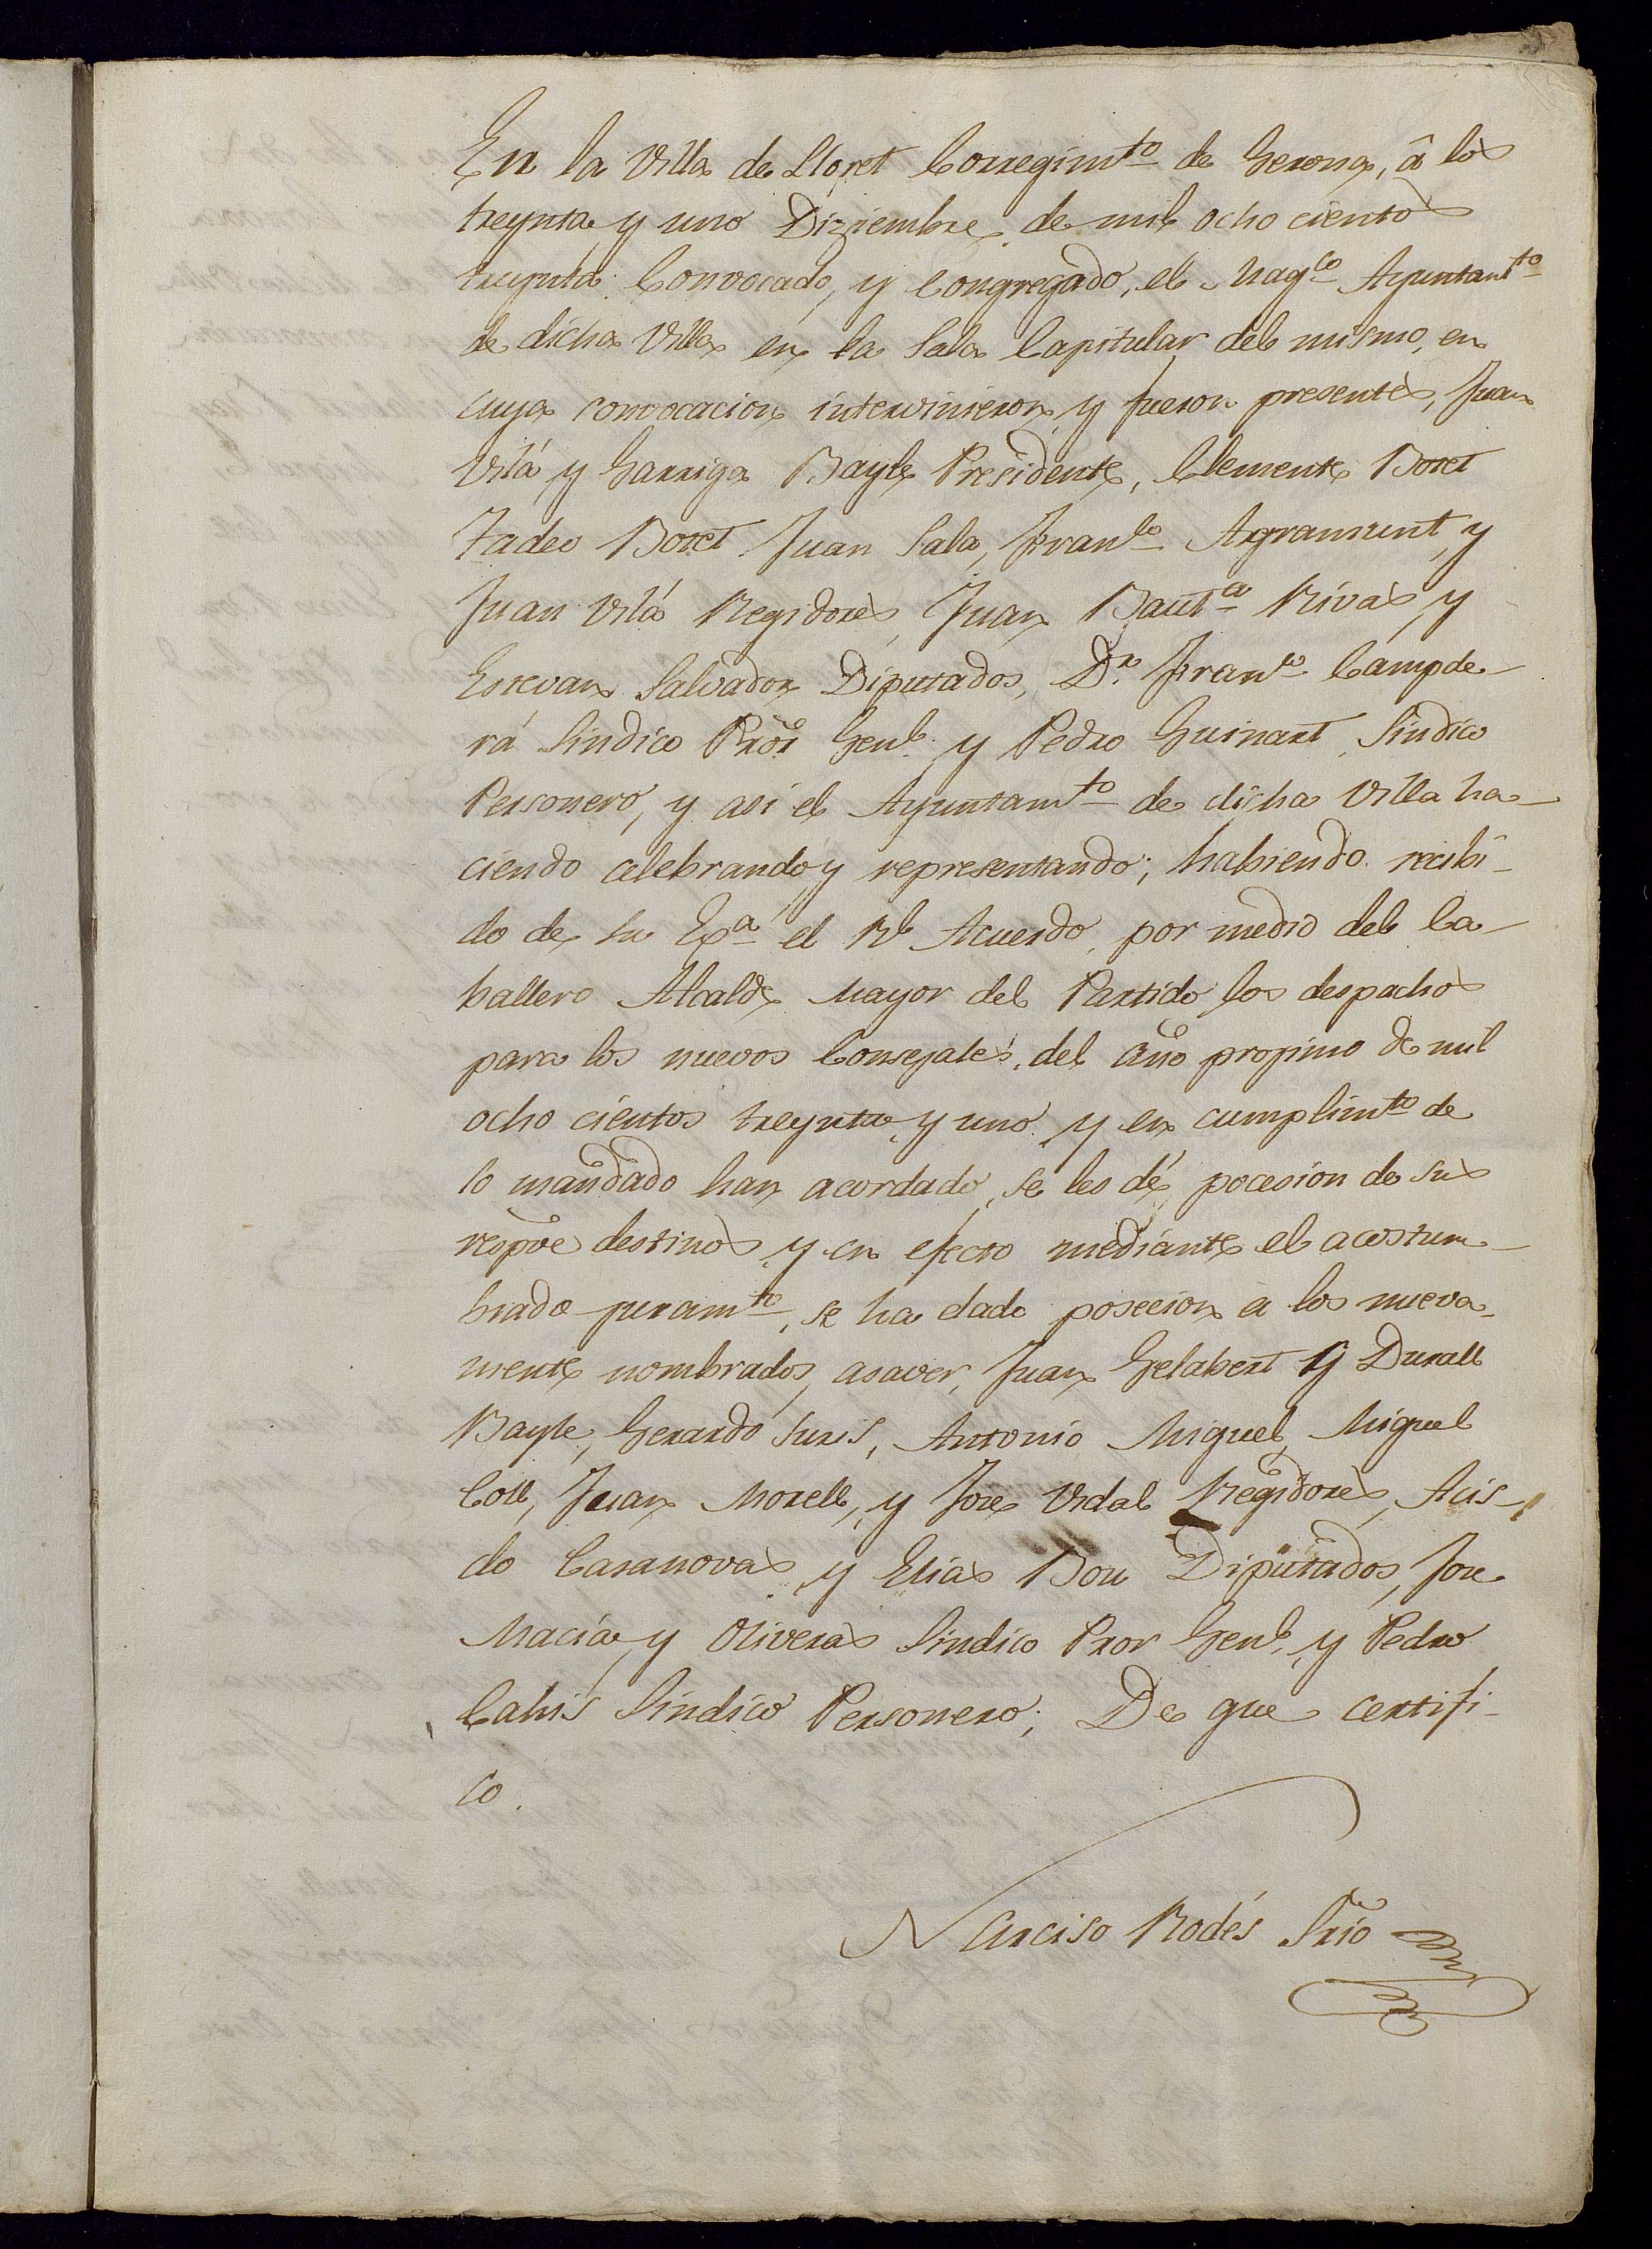 En la Villa de Lloret Corregimto de Gerona, â los
treynta y uno Diziembre de mil ocho cientos
treynta: Convocado, y Congregado, el Magco Ayuntamto
de dicha Villa en la Sala Capitular del mismo, en
cuya convocacion intervinieron y fueron presentes, Juan
Vilá y Garriga Bayle Presidente, Clemente Botet
Tadeo Botet Juan Sala, Franco Agramunt, y
Juan Vilá Regidores, Juan Bauta Rivas, y
Estevan Salvador Diputados, Dn Franco Campde-
rá Sindico Pror Genl. y Pedro Guinart Sindico
Personero, y asi el Ayuntamto de dicha Villa ha-
ciendo celebrando, y representando; habiendo recibi-
do de su Exa el Rl Acuerdo, por medio del Ca-
ballero Alcalde Mayor del Partido los despachos
para los nuevos Consejales, del año proximo de mil
ocho cientos treynta y uno y en cumplimto de
lo mandado han acordado, se les dé pocesion de sus
respve destinos y en efecto mediante el acostum-
brado juramto, se ha dado posecion a los nueva-
mente nombrados, asaver, Juan Gelabert y Durall
Bayle, Gerardo Suris, Antonio Miguel, Miguel
Coll, Juan Morell, y Jose Vidal Regidores, Acis-
clo Casanovas y Elias Bou Diputados, Jose
Maciá y Oliveras Sindico Pror Genl. y Pedro
Cabis Sindico Personero; De que certifi-
co.
Narciso Rodés Srio